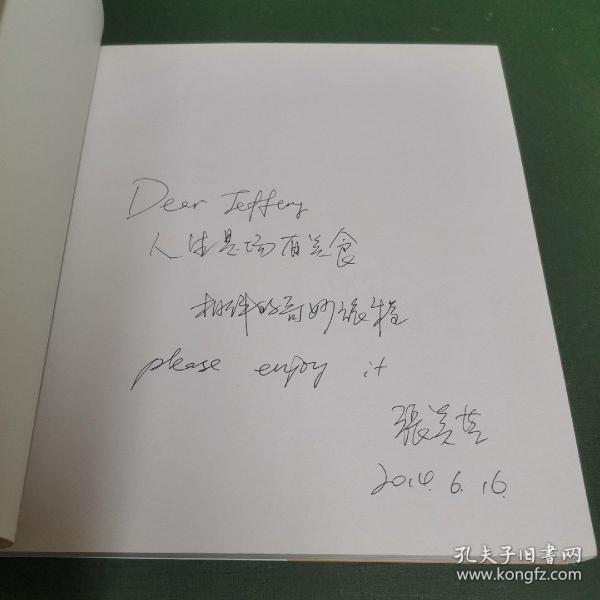 Dear Jeffery
人生是场有美食
相伴的奇妙旅程
please enjoy it
張美芸
2014.6.16.
孔夫子旧书网
www.kongfz.com